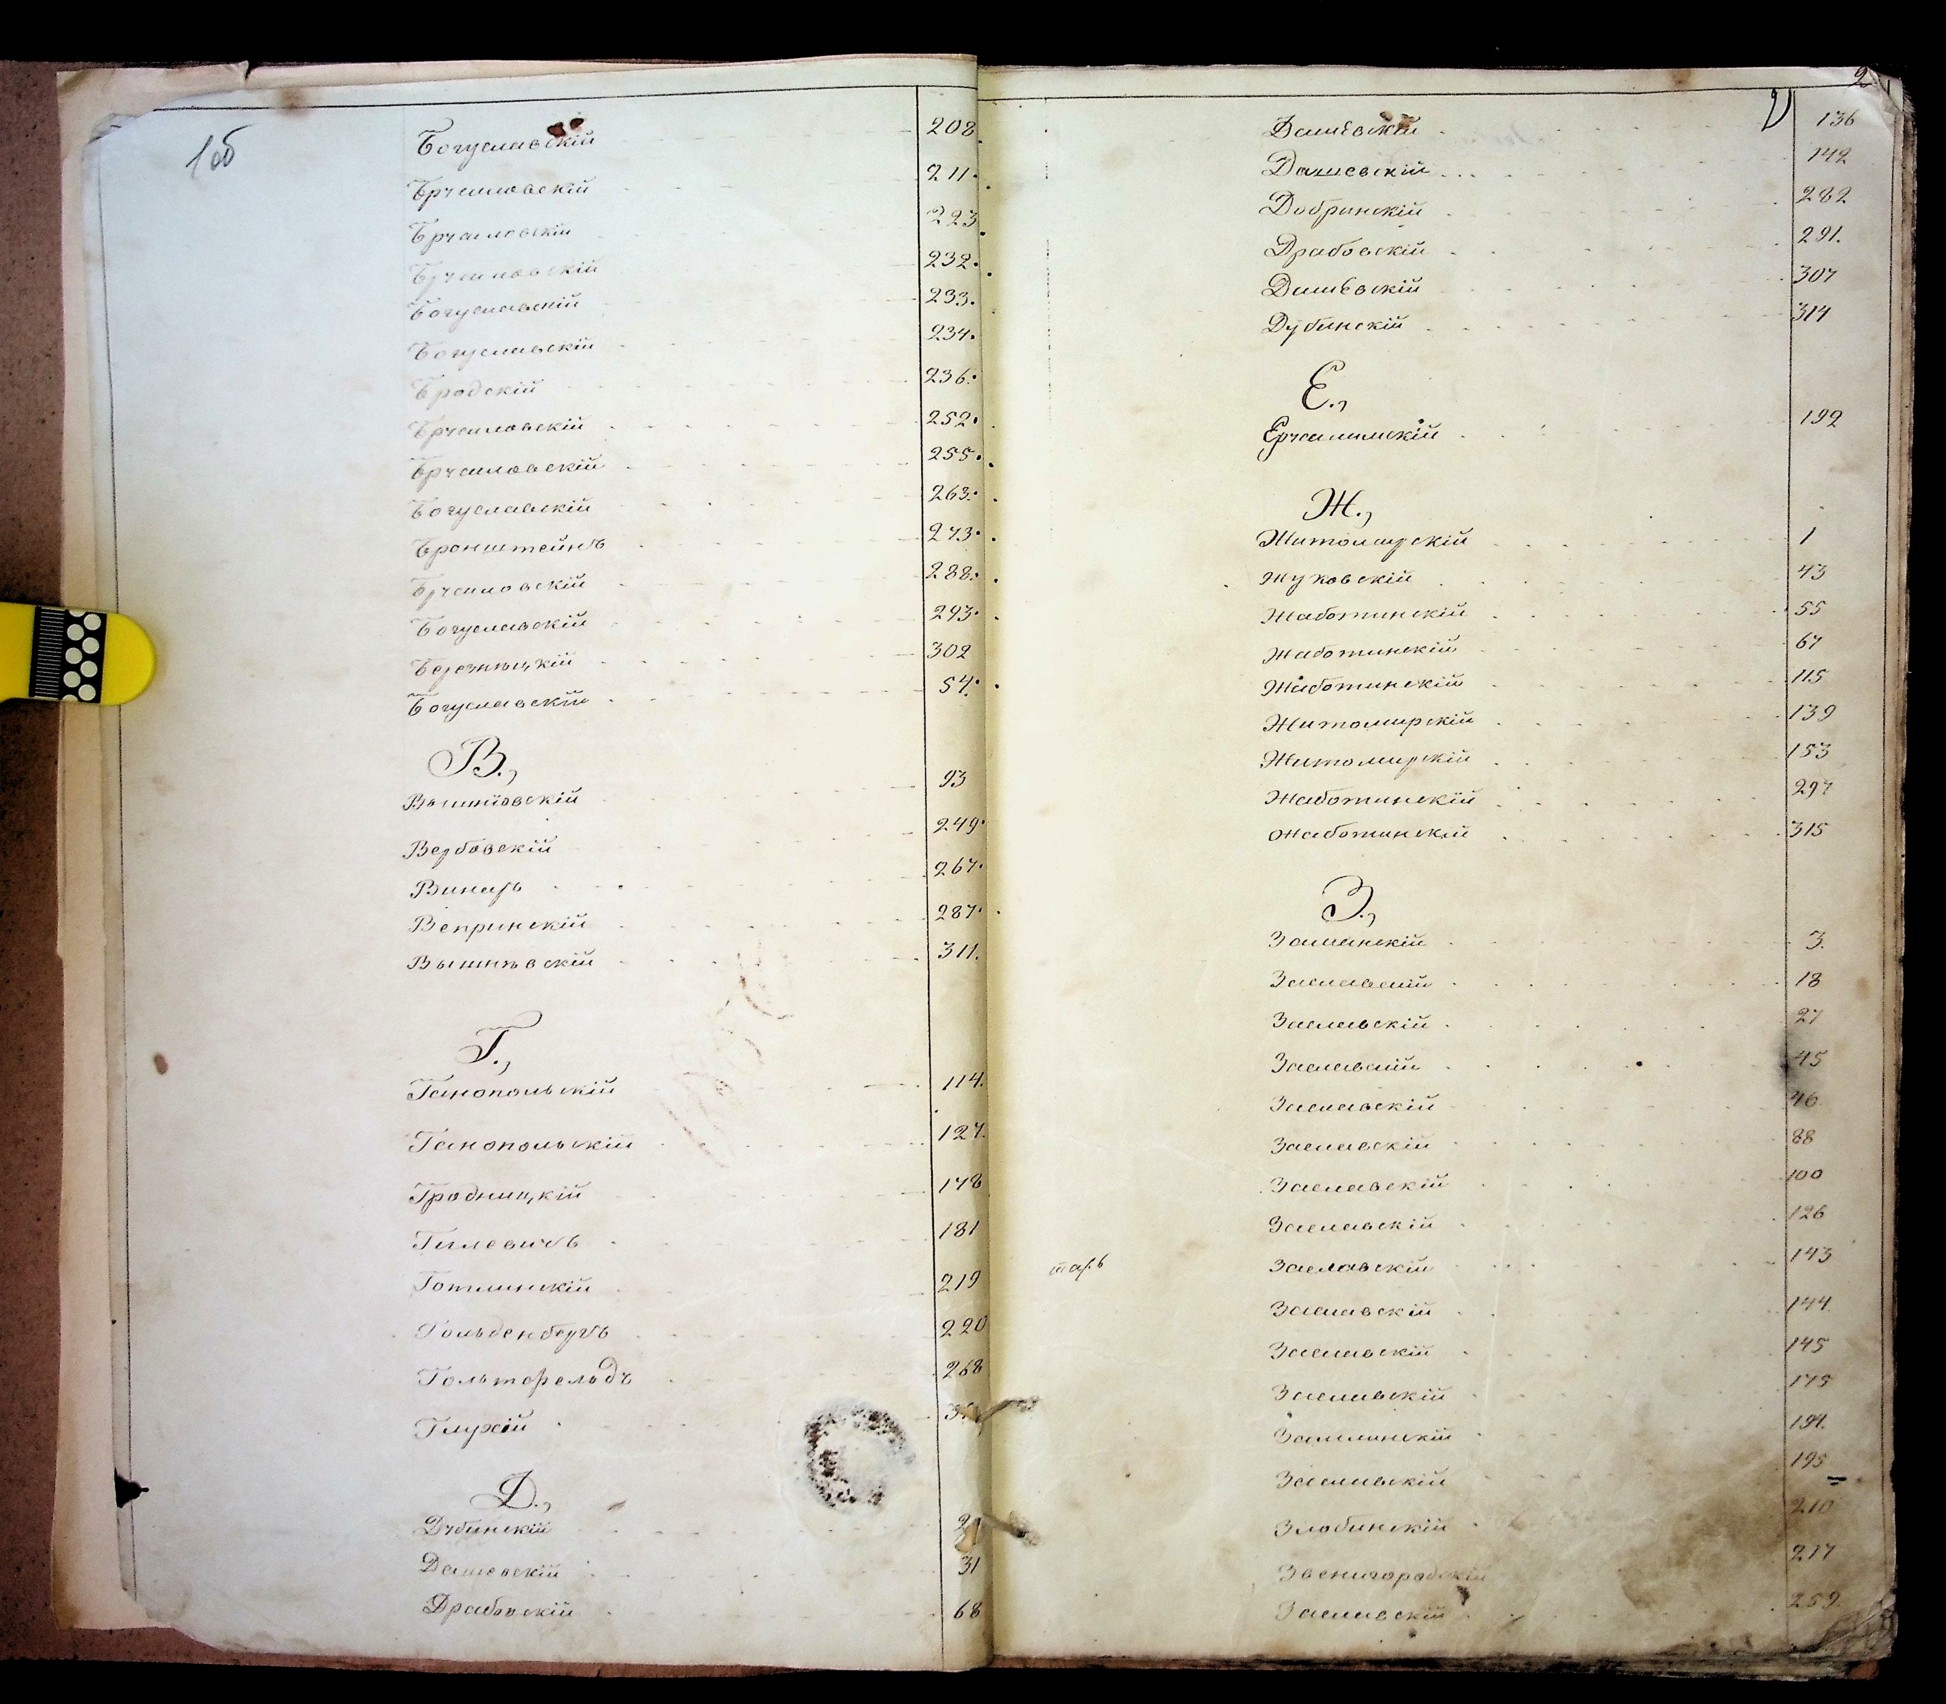 1об
Богуславскій 208
Брусиловскій 211.
Брусиловскій 223
Брусиловскій 232.
Богуславскій 233.
Богуславскій 234.
Бродскій 236.
Брусиловскій 252.
Брусиловскій 255.
Богуславскій 263.
Бронштейнъ 273.
Брусиловскій 288.
Богуславскій 293.
Березницкій 302
Богуславскій 54.
В.,
Вышневскій 93
Вербовскій 249.
Винаръ 267.
Вепринскій 287.
Вышневскій 311.
Г.,
Ганопольскій 114.
Ганопольскій 127.
Гродницкій 178
Гилевичъ 181
Готлинскій 219
Гольденбергъ 220
Гольтфельдъ 268
Глухій
Д.,
Дубинскій
Дашевскій 31
Драбовскій 68
2
Дашевскій 136
Дашевскій 142
Добринскій 282
Драбовскій 291.
Дашевскій 307
Дубинскій 314
Е.,
Ерусалимскій 192
Ж.,
Житомирскій 1
Жуковскій 43
Жаботинскій 55
Жаботинскій 67
Жаботинскій 115
Житомирскій 139
Житомирскій 153
Жаботинскій 297
Жаботинскій 315
З.,
Заманскій 3.
Заславскій 18
Заславскій 27
Заславскій 45
Заславскій 46
Заславскій 88
Заславскій 100
Заславскій 126
Заславскій 143
Заславскій 144
Заславскій 145
Заславскій 175
194.
Заславскій 195
Злобинскій 210
Звенигородскій 217
Заславскій 259